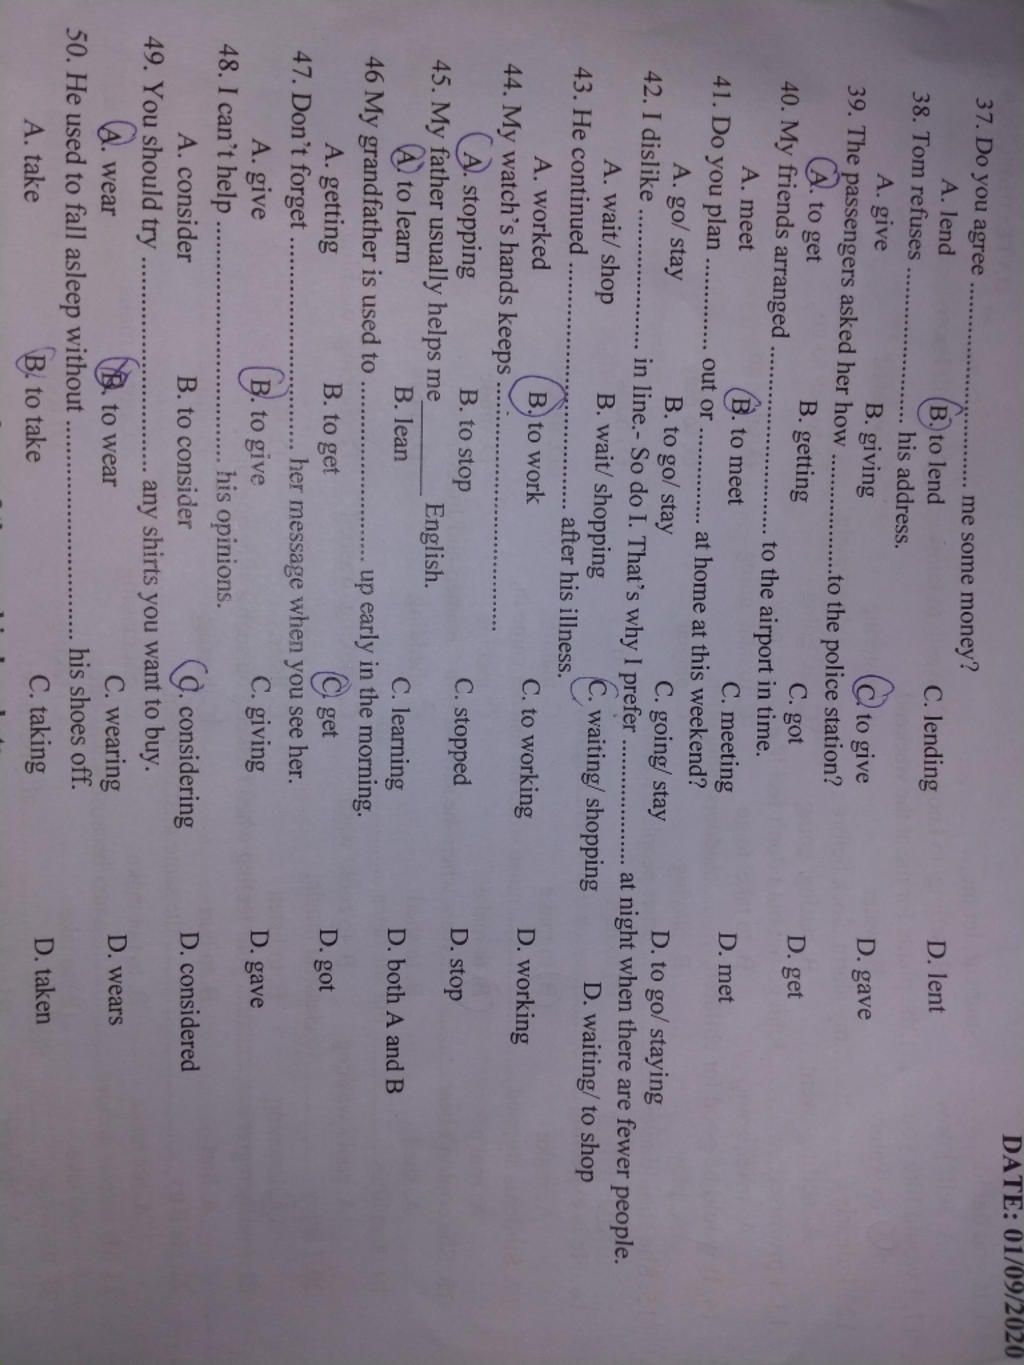 DATE: 01/09/2020
37. Do you agree .................................. me some money?
A. lend B. to lend C. lending D. lent
38. Tom refuses ......................... his address.
A. give B. giving C. to give D. gave
39. The passengers asked her how ....................to the police station?
A. to get B. getting C. got D. get
40. My friends arranged .............................. to the airport in time.
A. meet B. to meet C. meeting D. met
41. Do you plan ............... out or ............... at home at this weekend?
A. go/ stay B. to go/ stay C. going/ stay D. to go/ staying
42. I dislike ..................... in line.- So do I. That's why I prefer ..................... at night when there are fewer people.
A. wait/ shop B. wait/ shopping C. waiting/ shopping D. waiting/ to shop
43. He continued ....................................... after his illness.
A. worked B. to work C. to working D. working
44. My watch's hands keeps .......................................
A. stopping B. to stop C. stopped D. stop
45. My father usually helps me __________ English.
A. to learn B. lean C. learning D. both A and B
46 My grandfather is used to .............................. up early in the morning.
A. getting B. to get C. get D. got
47. Don't forget ................................. her message when you see her.
A. give B. to give C. giving D. gave
48. I can't help ....................................... his opinions.
A. consider B. to consider C. considering D. considered
49. You should try ................................... any shirts you want to buy.
A. wear B. to wear C. wearing D. wears
50. He used to fall asleep without .................................... his shoes off.
A. take B. to take C. taking D. taken